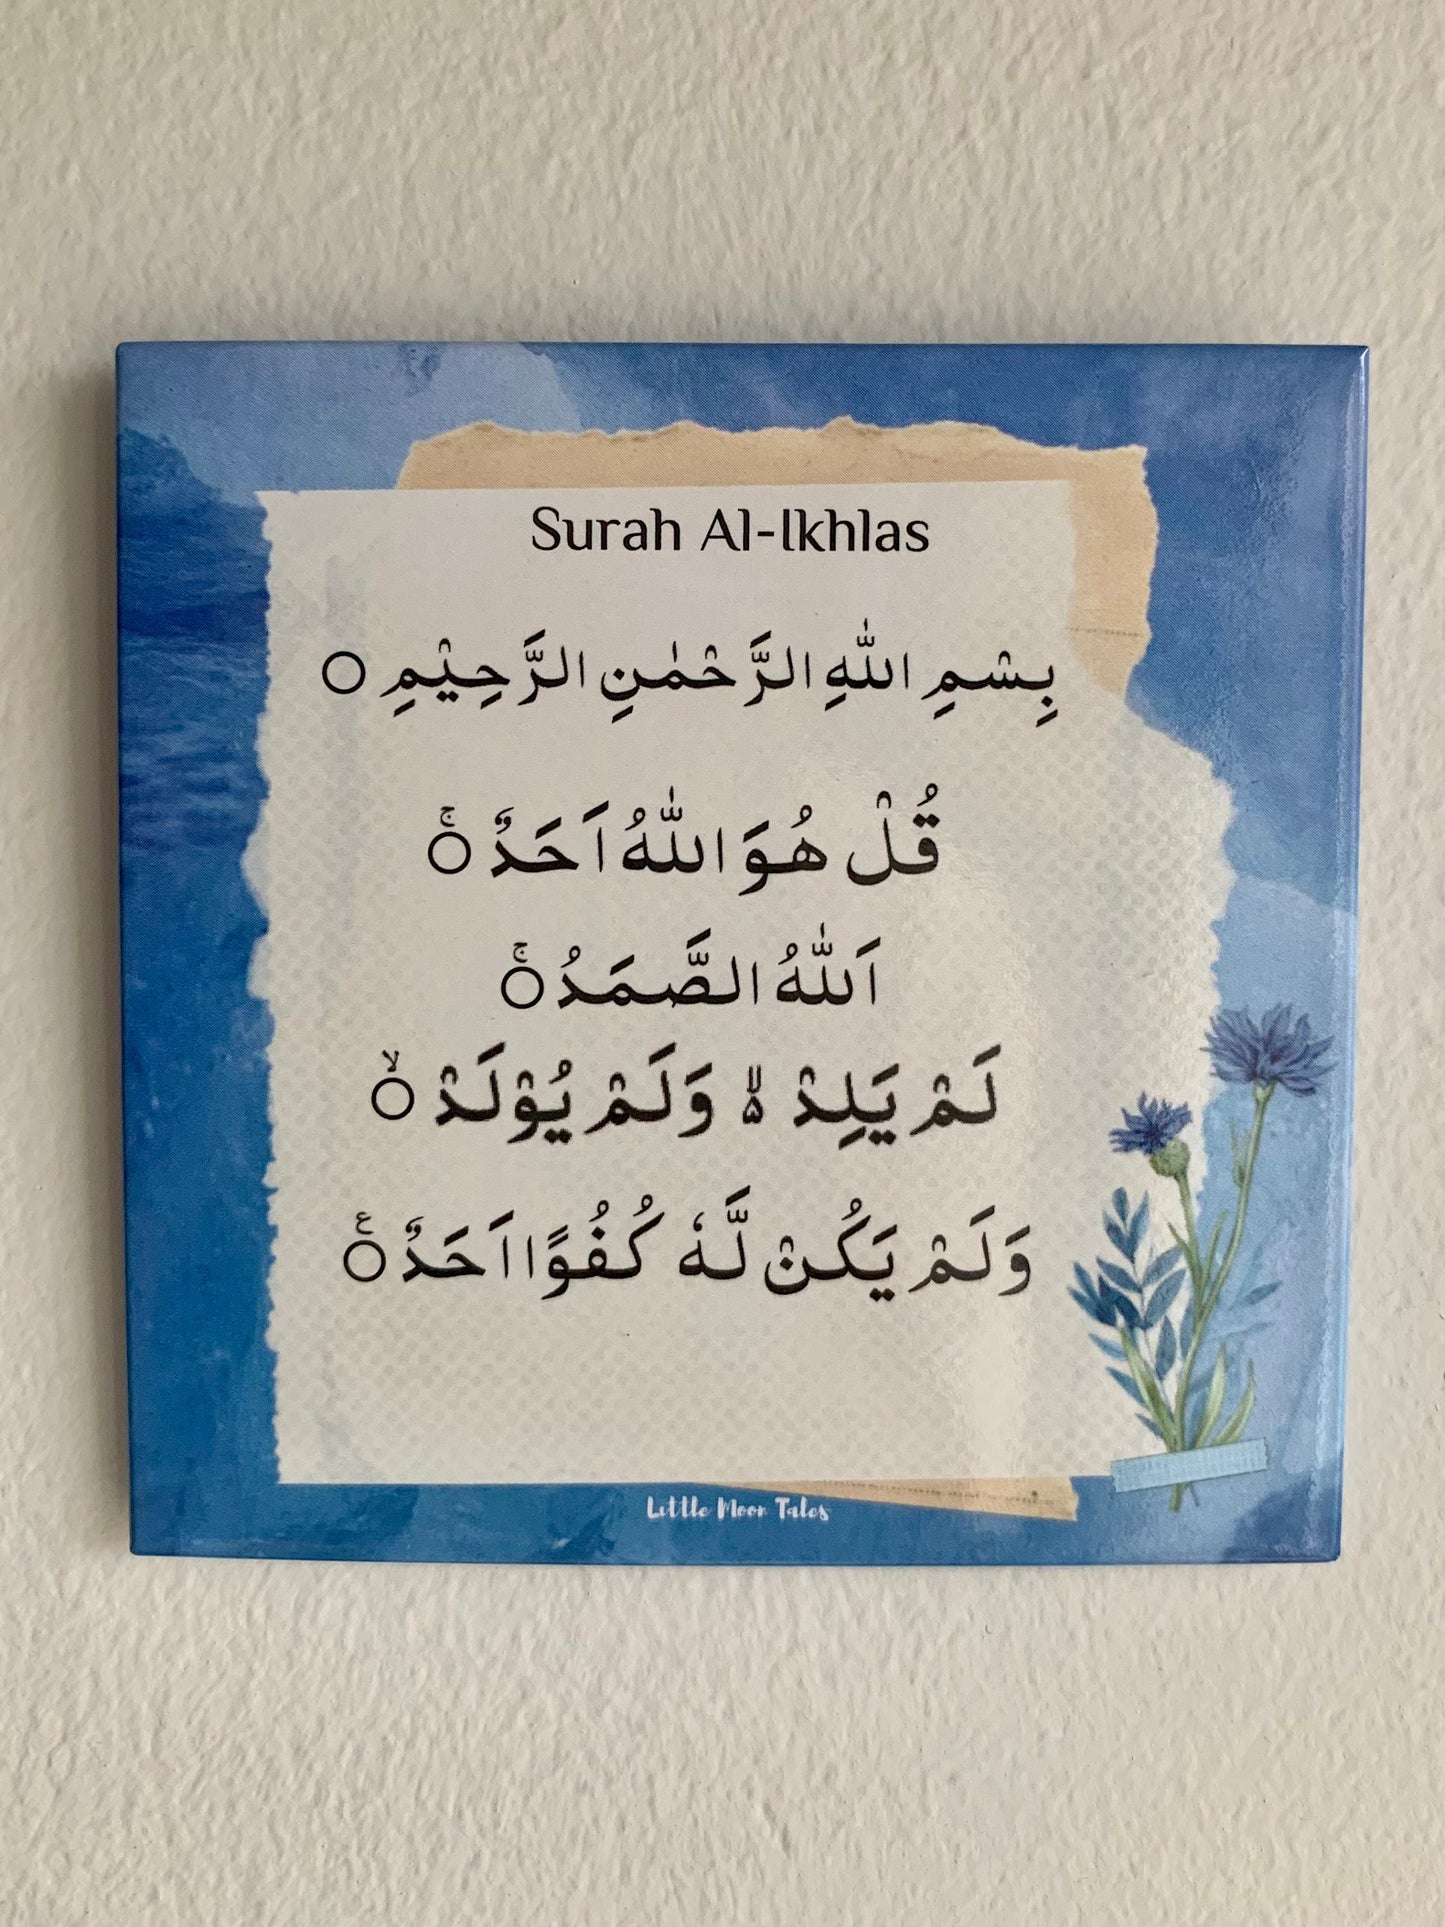 Surah Al-Ikhlas
بِسْمِ اللّٰهِ الرَّحْمٰنِ الرَّحِيْمِ ○
قُلْ هُوَ اللّٰهُ اَحَدٌ ○ۚ
اَللّٰهُ الصَّمَدُ ○ۚ
لَمْ يَلِدْ ەۙ وَلَمْ يُوْلَدْ ○ۙ
وَلَمْ يَكُنْ لَّهٗ كُفُوًا اَحَدٌ ○ࣖ
Little Moon Tales